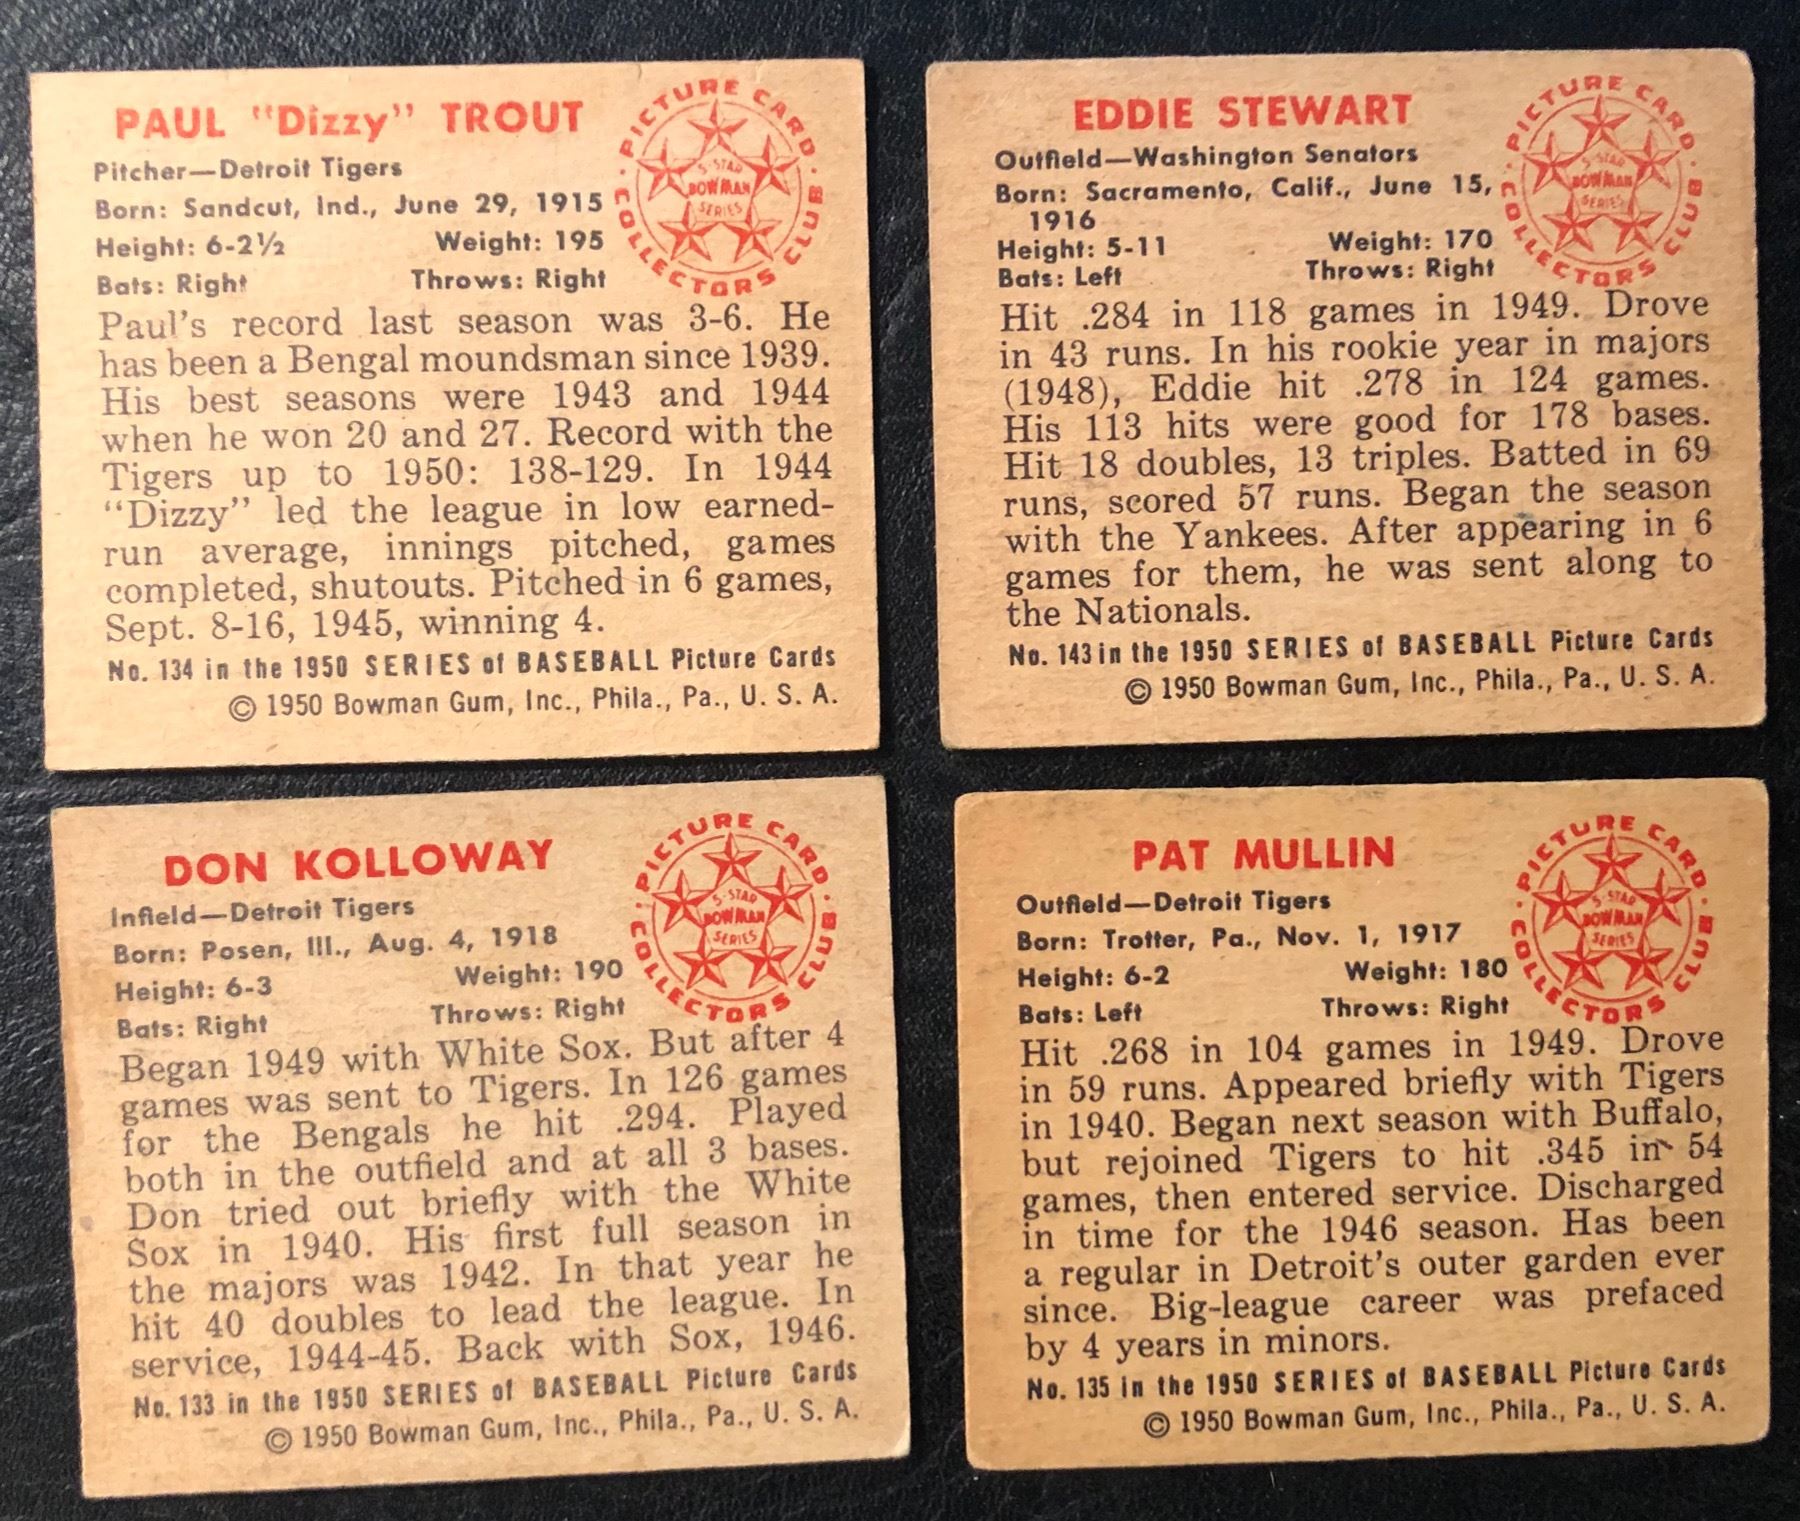 PAUL "Dizzy" TROUT
Pitcher—Detroit Tigers
Born: Sandcut, Ind., June 29, 1915
Height: 6-2½ Weight: 195
Bats: Right Throws: Right
PICTURE CARD COLLECTORS CLUB
5-STAR
BOWMAN
SERIES
Paul's record last season was 3-6. He
has been a Bengal moundsman since 1939.
His best seasons were 1943 and 1944
when he won 20 and 27. Record with the
Tigers up to 1950: 138-129. In 1944
"Dizzy" led the league in low earned-
run average, innings pitched, games
completed, shutouts. Pitched in 6 games,
Sept. 8-16, 1945, winning 4.
No. 134 in the 1950 SERIES of BASEBALL Picture Cards
© 1950 Bowman Gum, Inc., Phila., Pa., U. S. A.
EDDIE STEWART
Outfield—Washington Senators
Born: Sacramento, Calif., June 15,
1916
Height: 5-11 Weight: 170
Bats: Left Throws: Right
PICTURE CARD COLLECTORS CLUB
5-STAR
BOWMAN
SERIES
Hit .284 in 118 games in 1949. Drove
in 43 runs. In his rookie year in majors
(1948), Eddie hit .278 in 124 games.
His 113 hits were good for 178 bases.
Hit 18 doubles, 13 triples. Batted in 69
runs, scored 57 runs. Began the season
with the Yankees. After appearing in 6
games for them, he was sent along to
the Nationals.
No. 143 in the 1950 SERIES of BASEBALL Picture Cards
© 1950 Bowman Gum, Inc., Phila., Pa., U. S. A.
DON KOLLOWAY
Infield—Detroit Tigers
Born: Posen, Ill., Aug. 4, 1918
Height: 6-3 Weight: 190
Bats: Right Throws: Right
PICTURE CARD COLLECTORS CLUB
5-STAR
BOWMAN
SERIES
Began 1949 with White Sox. But after 4
games was sent to Tigers. In 126 games
for the Bengals he hit .294. Played
both in the outfield and at all 3 bases.
Don tried out briefly with the White
Sox in 1940. His first full season in
the majors was 1942. In that year he
hit 40 doubles to lead the league. In
service, 1944-45. Back with Sox, 1946.
No. 133 in the 1950 SERIES of BASEBALL Picture Cards
© 1950 Bowman Gum, Inc., Phila., Pa., U. S. A.
PAT MULLIN
Outfield—Detroit Tigers
Born: Trotter, Pa., Nov. 1, 1917
Height: 6-2 Weight: 180
Bats: Left Throws: Right
PICTURE CARD COLLECTORS CLUB
5-STAR
BOWMAN
SERIES
Hit .268 in 104 games in 1949. Drove
in 59 runs. Appeared briefly with Tigers
in 1940. Began next season with Buffalo,
but rejoined Tigers to hit .345 in 54
games, then entered service. Discharged
in time for the 1946 season. Has been
a regular in Detroit's outer garden ever
since. Big-league career was prefaced
by 4 years in minors.
No. 135 in the 1950 SERIES of BASEBALL Picture Cards
© 1950 Bowman Gum, Inc., Phila., Pa., U. S. A.